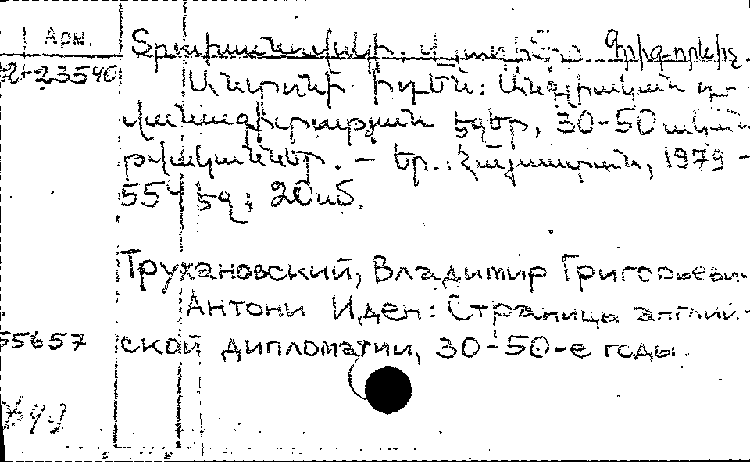 Арм.
Տրուխանովսկի, Վլադիմիր Գրիգորևիչ.
2-23540
Անտոնի Իդեն: Անգլիական դի-
վանագիտության էջեր, 30-50 ական
թվականներ. — Եր.: Հայաստան, 1979 —
554 էջ; 20սմ.
Трухановский, Владимир Григорьевич
Антони Иден: Страницы англий-
55657 ской дипломатии, 30-50-е годы.